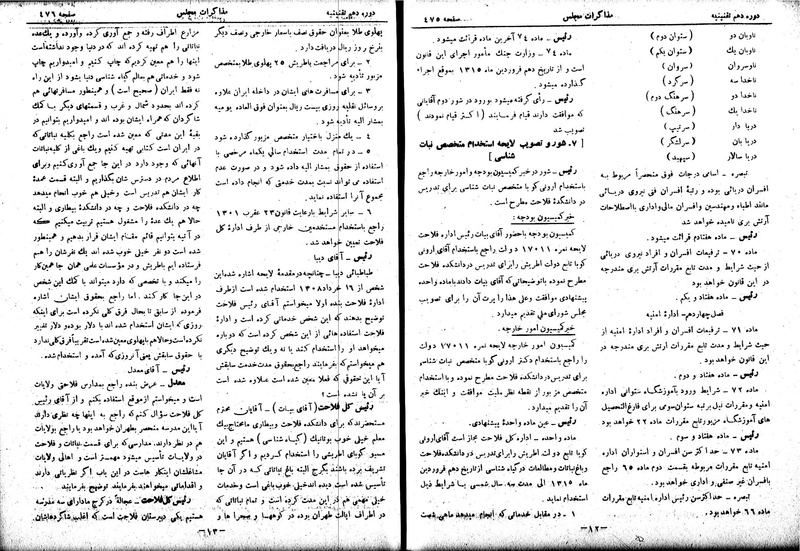 صفحه ۴۷۵
مذاکرات مجلس
دوره دهم تقنینیه
ناوبان دو (ستوان دوم)
ناوبان یك (ستوان یکم)
ناوسروان (سروان)
ناخدا سه (سرگرد)
ناخدا دو (سرهنگ دوم)
ناخدا یك (سرهنگ)
دریا دار (سرتیپ)
دریا بان (سرلشگر)
دریا سالار (سپهبد)
تبصره ـ اسامی درجات فوق منحصراً مربوط به
افسران دریائی بوده و رتبهٔ افسران فنی نیروی دریائی
مانند اطباء ومهندسین و افسران مالی واداری با اصطلاحات
آرتش بری نامیده خواهد شد
رئیس ـ ماده هفتادم قرائت میشود.
ماده ۷۰ ـ ترفیعات افسران و افراد نیروی دریائی
از حیث شرایط و مدت تابع مقررات آرتش بری مندرجه
در این قانون خواهد بود
رئیس ـ ماده هفتاد و یکم.
فصل چهاردهم ـ ادارهٔ امنیه
ماده ۷۱ ـ ترفیعات افسران و افراد ادارهٔ امنیه از
حیث شرایط و مدت تابع مقررات آرتش بری مندرجه در
این قانون خواهد بود.
رئیس ـ ماده هفتاد و دوم.
ماده ۷۲ ـ شرایط ورود بآموزشگاه ستوانی اداره
امنیه و مقررات نیل برتبه ستوان سومی برای فارغ التحصیل
های آموزشگاه مزبور تابع مقررات ماده ۲۲ خواهد بود
رئیس ـ ماده هفتاد و سوم.
ماده ۷۳ ـ حداکثر سن افسران و استواران اداره
امنیه تابع مقررات مربوطه بقسمت دوم ماده ۶۵ راجع
بافسران غیر صنفی و اداری خواهد بود.
تبصره ـ حداکثر سن رئیس اداره امنیه تابع مقررات
ماده ۶۶ خواهد بود.
رئیس ـ ماده ۷۴ آخرین ماده قرائت میشود.
ماده ۷۴ ـ وزارت جنگ مأمور اجرای این قانون
است و از تاریخ دهم فروردین ماه ۱۳۱۵ بموقع اجراء
گذارده میشود.
رئیس ـ رأی گرفته میشود بورود در شور دوم آقایانی
که موافقت دارند قیام فرمایند (اکثر قیام نمودند)
تصویب شد
[۷ ـ شور و تصویب لایحه استخدام متخصص نبات
شناسی]
رئیس ـ شور در خبر کمیسیون بودجه و امور خارجه راجع
باستخدام ارونی گوبا متخصص نبات شناسی برای تدریس
در دانشکدهٔ فلاحت مطرح است.
خبر کمیسیون بودجه:
کمیسیون بودجه باحضور آقای بیات رئیس اداره فلاحت
لایحه نمره ۱۷۰۱۱ دولت راجع باستخدام آقای ارونی
گوبا تابع دولت اطریش رابرای تدریس دردانشکده فلاحت
مطرح نموده باتوضیحاتی که آقای بیات دادند باماده واحده
پیشنهادی موافقت وعلی هذا راپرت آن را برای تصویب
مجلس شورای ملی تقدیم میدارد.
خبر کمیسیون امور خارجه.
کمیسیون امور خارجه لایحه نمره ۱۷۰۱۱ دولت
را راجع باستخدام دکتر ارونی گوبا متخصص نبات شناسی
برای تدریس در دانشکدهٔ فلاحت مطرح نموده و با استخدام
متخصص مزبور از نقطه نظر ملیت موافقت و اینك خبر
آن را تقدیم میدارد.
رئیس ـ عین ماده واحدهٔ پیشنهادی.
ماده واحده ـ اداره کل فلاحت مجاز است آقای ارونی
گوبا تابع دولت اطریش رابرای تدریس در دانشکده فلاحت
وباغ نباتات ومطالعات در گیاه شناسی از تاریخ دهم فروردین
ماه ۱۳۱۵ الی مدت سه سال شمسی با شرایط ذیل
استخدام نماید
۱ ـ در مقابل خدماتی که انجام میدهد ماهی شصت
ـ ۸۲ ـ
صفحه ۴۷۶
مذاکرات مجلس
دوره دهم تقنینیه
پهلوی طلا بعنوان حقوق نصف باسعار خارجی ونصف دیگر
بفرخ و روز ریال دریافت دارد.
۲ ـ برای مراجعت باطریش ۲۵ پهلوی طلا بمتخصص
مزبور تأدیه شود.
۳ ـ برای مسافرت‌های ایشان در داخله ایران علاوه
بروسائل نقلیه روزی بیست ریال بعنوان فوق العاده یومیه
بمشار الیه تأدیه شود.
۴ ـ یك منزل باختیار متخصص مزبور گذارده شود
۵ ـ در تمام مدت استخدام سالی یکماه مرخصی با
استفاده از حقوق بمشار الیه داده شود و در صورت عدم
استفاده می تواند نسبت بمدت خدمتی که انجام داده است
مجموع آنرا استفاده نماید.
۶ ـ سایر شرایط بارعایت قانون ۲۳ عقرب ۱۳۰۱
راجع باستخدام مستخدمین خارجی از طرف ادارهٔ کل
فلاحت تعیین خواهد شد.
رئیس ـ آقای دیبا
طباطبائی دیبا ـ چنانچه درمقدمهٔ لایحه اشاره شده این
شخص از ۱۶ خرداد ۱۳۰۸ استخدام شده است ازطرف
ادارهٔ فلاحت بنده اولا میخواستم آقای رئیس فلاحت
توضیح بدهند که این شخص کی استخدام شده است و ادارهٔ
فلاحت استفاده هائی از این شخص کرده است که دوباره
میخواهد او را استخدام کنند یا نه و یك توضیح دیگری
هم میخواستم که بفرمایند راجع بحقوق مدت خدمت سابقش
آیا این حقوقی که فعلا معین شده است علاوه شده است
بر آن یا نشده است؟
رئیس کل فلاحت (آقای بیات) ـ آقایان محترم
مستحضرند که برای دانشکدهٔ فلاحت وبیطاری ماحتاج بیك
معلم خیلی خوب بوتانیك (گیاه شناسی) هستیم و این
مسیو گوبای اطریشی را استخدام کردیم و اگر آقایان
تشریف برده باشند بکرج البته باغ نباتاتی که در آن جا
تأسیس شده است دیده اند خیلی خوب باغی است وخدمات
خیلی مهمی هم در این مدت کرده است و تمام نباتاتی که
در اطراف ایالت طهران بوده در کوهها و صحرا ها و
مزارع اطراف رفته و جمع آوری کرده وآورده و یكعده
نباتاتی را هم تهیه کرده اند که در دنیا وجود نداشته است
اینها را هم معین کردیم که چاپ کنیم و امیدواریم چاپ
شود و خدماتی هم بعالم گیاه شناسی دنیا بشود از این راه
نه فقط ایران (صحیح است) و همینطور مسافرتهائی هم
کرده اند بحدود شمال و غرب و قسمتهای دیگر با کمك
شاگردان که همراه ایشان بوده اند و امیدواریم بتوانیم در
بقیهٔ این مدتی که معین شده است راجع بکلیه نباتاتی که
در ایران است کتابی تهیه کنیم ویك باغی از کلیه نباتات
آنهائی که وجود دارد در این جا جمع آوری کنیم وبرای
اطلاع مردم در دسترس شان بگذاریم و البته قسمت عمدهٔ
کار ایشان هم تدریس است و خیلی هم خوب انجام میدهد
چه در دانشکدهٔ فلاحت و چه در دانشکدهٔ بیطاری و البته
حالا هم یك عدهٔ را مشغول هستیم تربیت میکنیم که
در آتیه بتوانیم قائم مقام ایشان قرار بدهیم و همینطور
شده است دو نفر خیلی خوب شده اند یك نفرشان را هم
فرستاده ایم باطریش و در مؤسسات علمی همان جا همین کار
را میکند و با تخصصی که دارد میتواند با کمك این شخص
در این‌جا کار کند. اما راجع بحقوق ایشان اشاره
فرموده از سابق تا بحال فرق کلی نکرده است برای اینکه
روزی که ایشان استخدام شده اند با دلار بوده و دلار تغییر
نکرده است وحالا هم با پهلوی معین شده است تقریباً فرقی ندارد
با حقوق سابقش یعنی آنروزی که آمده و استخدام شده.
رئیس ـ آقای معدل
معدل ـ عرض بنده راجع بمدارس فلاحتی ولایات
است و میخواستم ازموقع استفاده بکنم و از آقای رئیس
کل فلاحت سؤال کنم که راجع به اینها چه نظری دارند
آیا این مدرسه منحصر بطهران خواهد بود یا راجع بولایات
هم در نظر دارند. مدارسی که برای قسمت نباتات و فلاحت
در ولایات تأسیس میشود مهمتر است و اهالی ولایات
مشاغلشان اینکار هاست در این باب اگر نظریاتی دارند
و اقداماتی میخواهند بفرمایند توضیح بفرمایند.
رئیس کل فلاحت ـ عجالةً در کرج ما دارای سه مدرسه
هستیم یکی دبیرستان فلاحت است که اغلب شاگردهاشان
ـ ۶۱۳ ـ